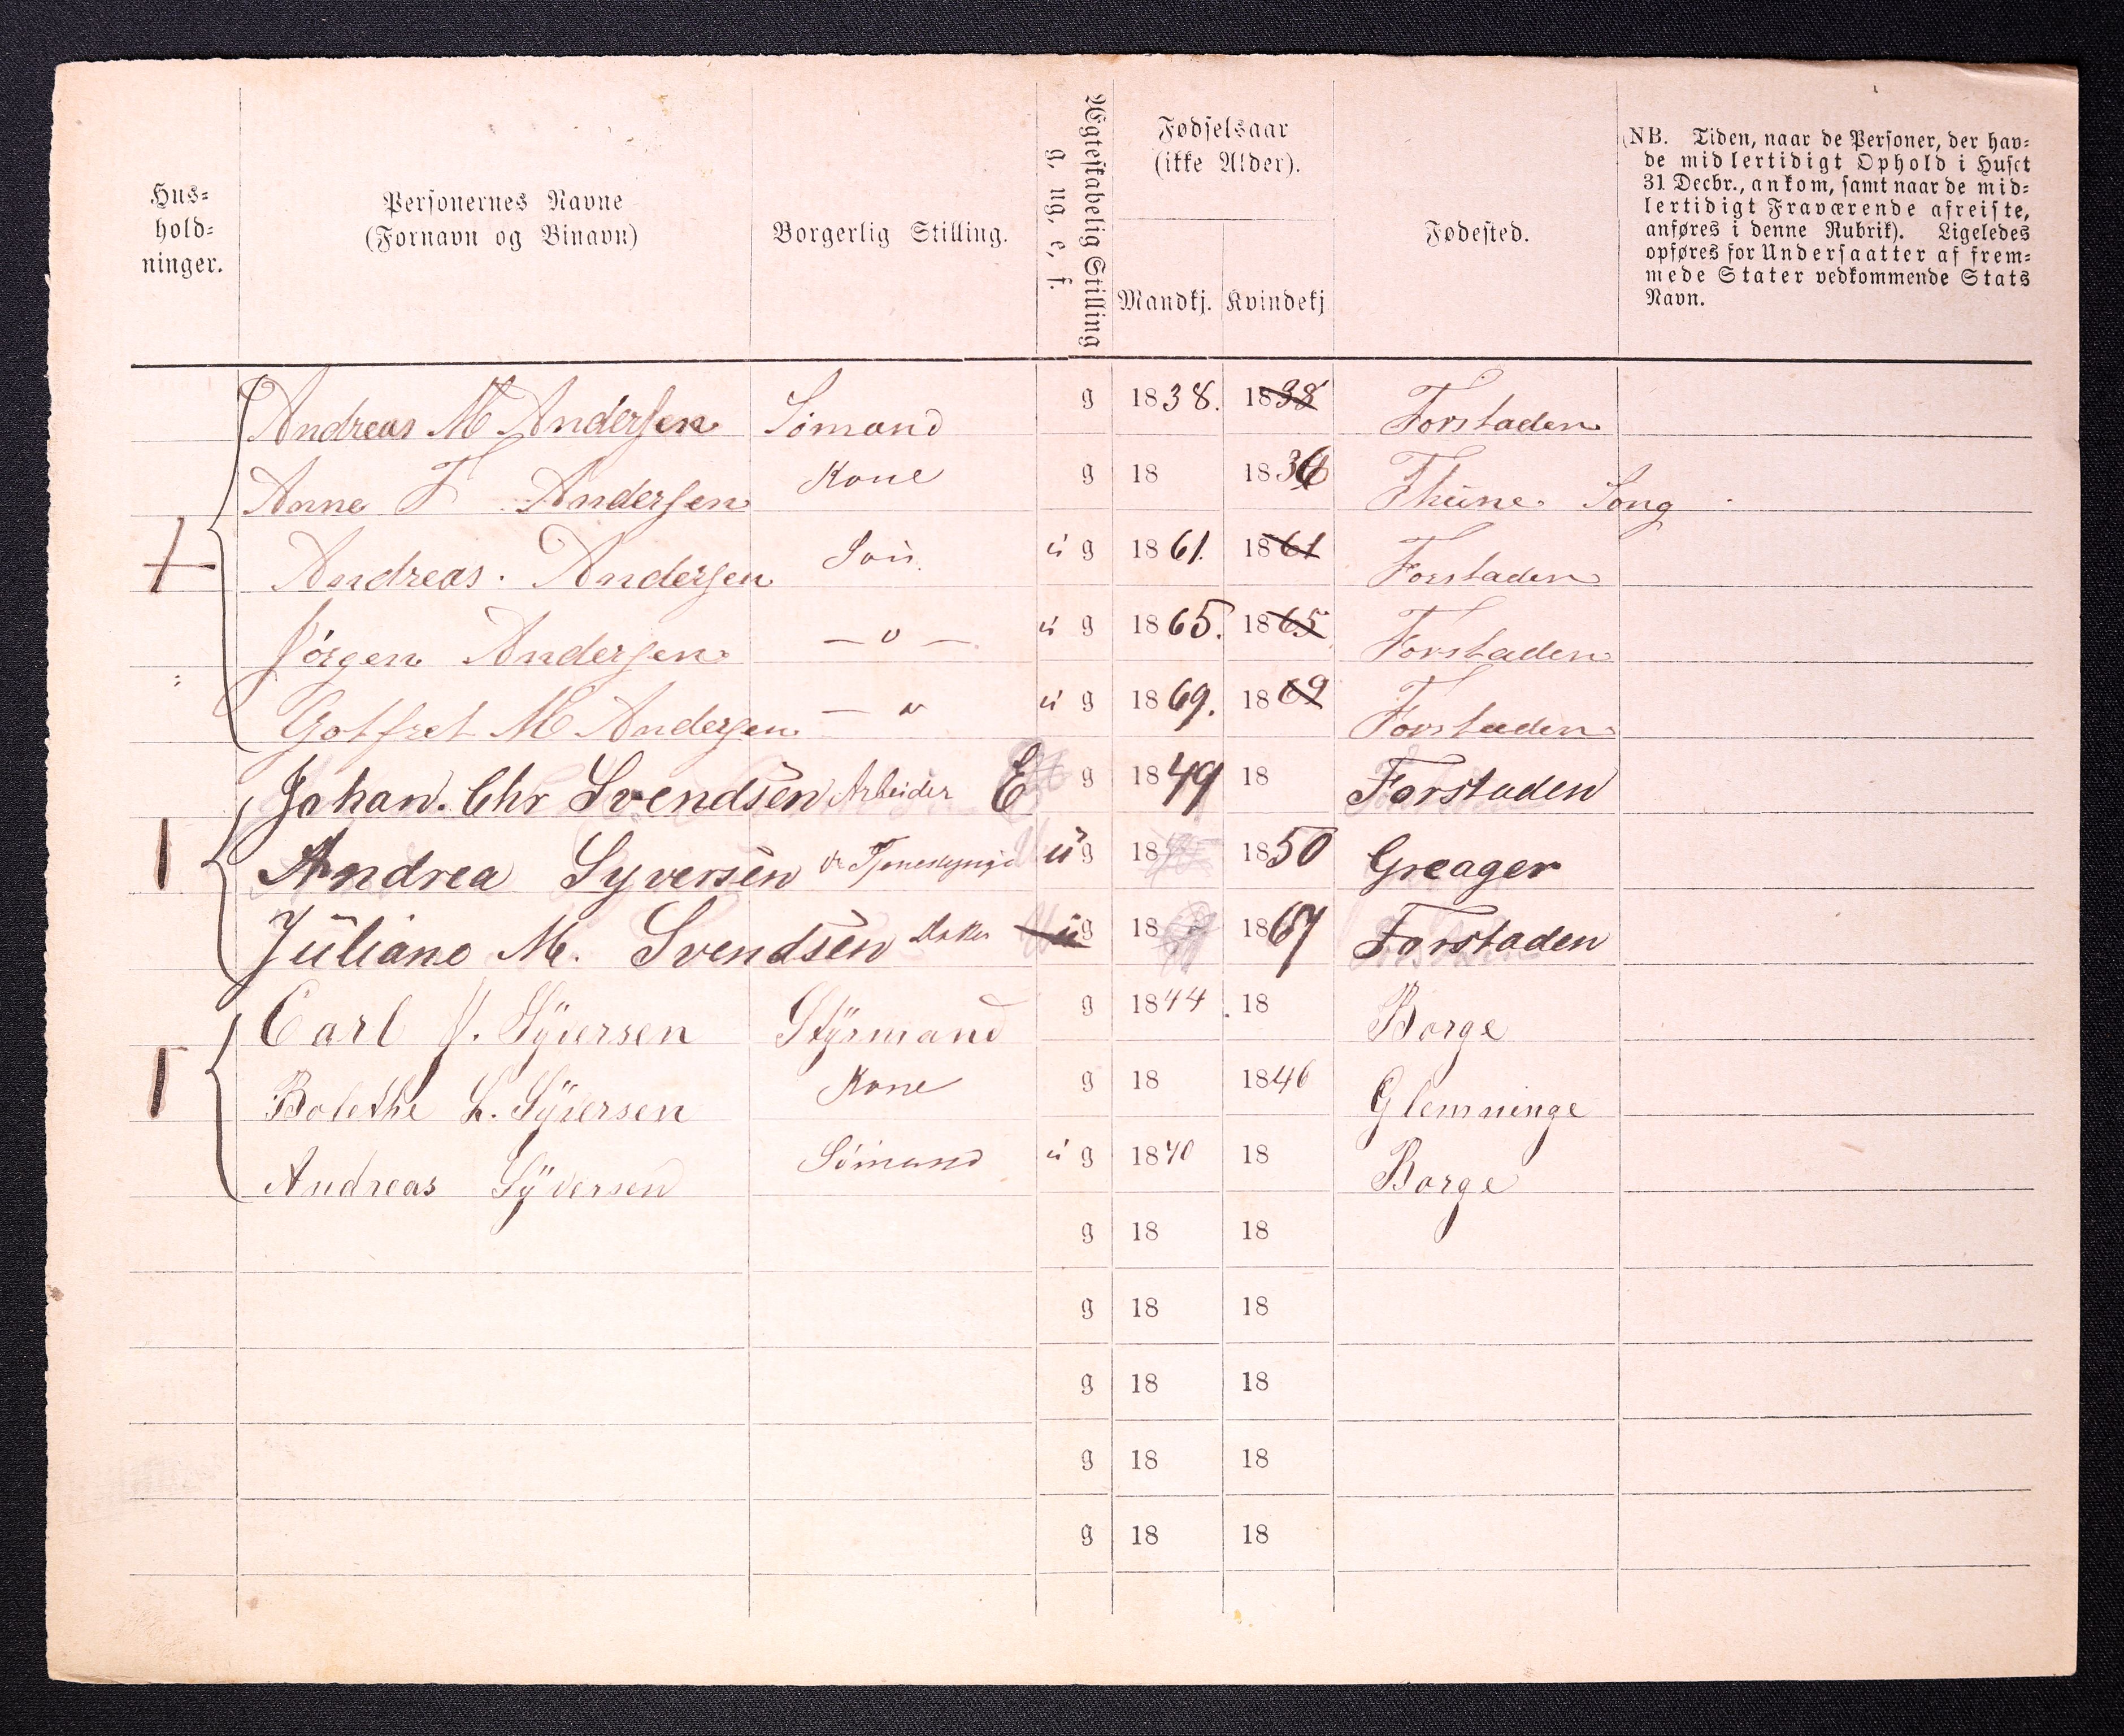 Hus-
hold-
ninger.
Personernes Navne
(Fornavn og Binavn)
Borgerlig Stilling.
Ægteskabelig Stilling
g. ug. e, f.
Fødselsaar
(ikke Alder).
Mandkj. Kvindekj
Fødested.
(NB. Tiden, naar de Personer, der hav-
de midlertidigt Ophold i Huset
31 Decbr., ankom, samt naar de mid-
lertidigt Fraværende afreiste,
anføres i denne Rubrik). Ligeledes
opføres for Undersaatter af frem-
mede Stater vedkommende Stats
Navn.
Andreas M Andersen Sömand g 1838. 1838 Forstaden
Anne F Andersen Kone g 18 1836 Thüne Song
Andreas. Andersen Sön ü g 1861. 1861 Forstaden
Jörgen Andersen — o — ü g 1865. 1865 Forstaden
Gotfret M Andersen — o ü g 1869. 1869 Forstaden
Johan. Chr Svendsen Arbeider E g 1849 18 Forstaden
Andrea Syversen ü g 18 1850 Greager
Juliane M. Svendsen ü g 18 1867 Forstaden
Carl J. Syversen Styrmand g 1844 18 Borge
Bolethe L. Syversen Kone g 18 1846 Glemminge
Andreas Syversen Sömand ü g 1840 18 Borge
g 18 18
g 18 18
g 18 18
g 18 18
g 18 18